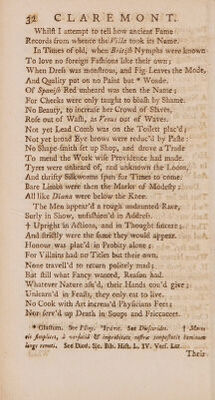 32 CLAREMONT.
Whilst I attempt to tell how ancient Fame
Records from whence the Villa took its Name.
In Times of old, when British Nymphs were known
To love no foreign Fashions like their own;
When Dress was monstrous, and Fig-Leaves the Mode,
And Quality put on no Paint but * Woade.
Of Spanish Red unheard was then the Name;
For Cheeks were only taught to blush by Shame.
No Beauty, to increase her Crowd of Slaves,
Rose out of Wash, as Venus out of Waves.
Not yet Lead Comb was on the Toilet plac'd;
Not yet broad Eye-brows were reduc'd by Paste:
No Shape-smith set up Shop, and drove a Trade
To mend the Work wise Providence had made.
Tyres were unheard of, and unknown the Loom,
And thrifty Silkworms spun for Times to come.
Bare Limbs were then the Marks of Modesty;
All like Diana were below the Knee.
The Men appear'd a rough undaunted Race,
Surly in Show, unfashion'd in Address.
† Upright in Actions, and in Thought sincere;
And strictly were the same they would appear.
Honour was plac'd in Probity alone;
For Villains had no Titles but their own.
None travell'd to return politely mad;
But still what Fancy wanted, Reason had.
Whatever Nature ask'd, their Hands cou'd give;
Unlearn'd in Feasts, they only eat to live.
No Cook with Art increas'd Physicians Fees;
Nor serv'd up Death in Soups and Fricacees.
* Glastum. See Pliny. See Dioscorides. † Mores
eis simplices, à versutiâ & improbitate nostræ
longè remoti. See Diod. Sic. Bib. Hist. L. IV. Vers. Lat.
Their